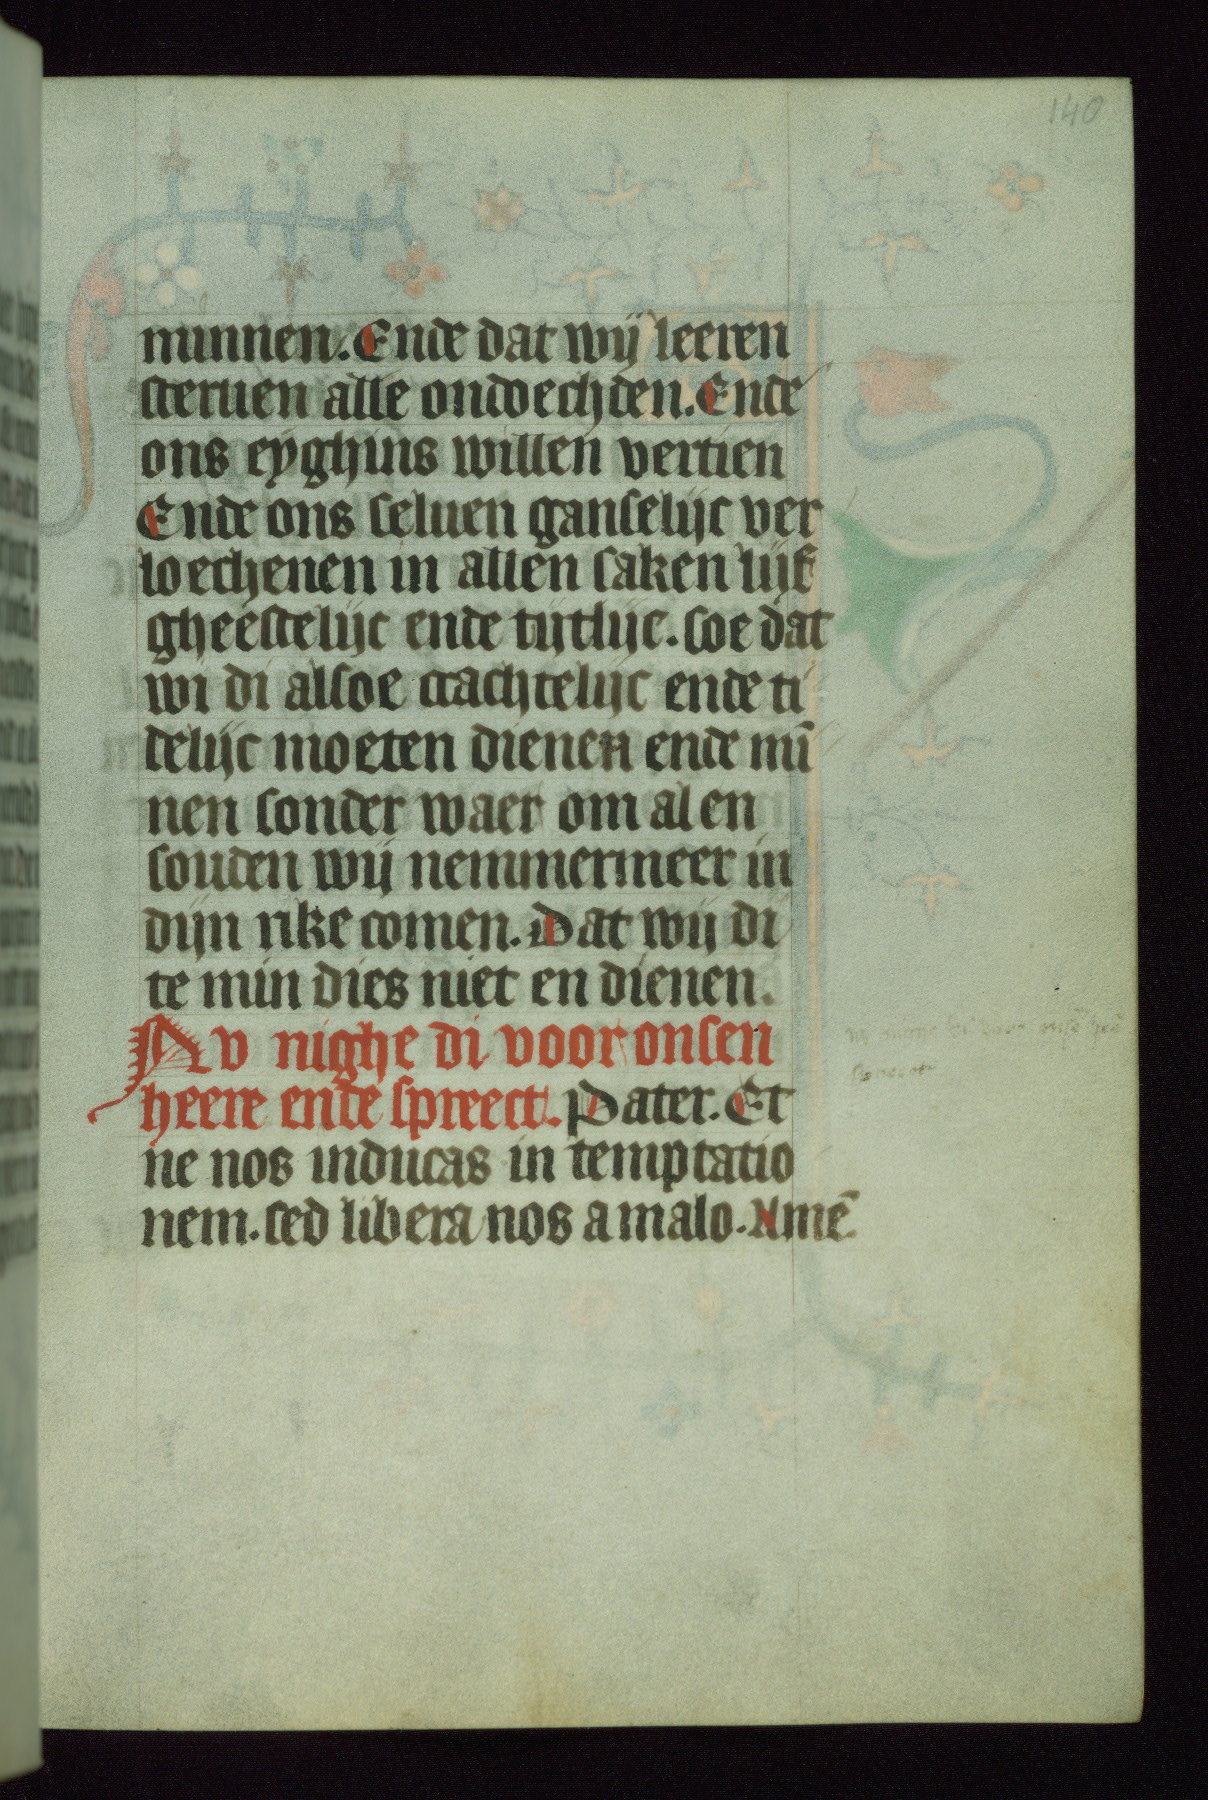 140
minnen. Ende dat wij leeren
steruen alle ondoechden. Ende
ons eyghins willen vertien
Ende ons seluen ganselijc ver
loechenen in allen saken lijf
gheestelijc ende tijtlijc. soe dat
wi di alsoe crachtelijc ende ti
delijc moeten dienen ende mī
nen sonder waer om al en
souden wij nemmermeer in
dijn rike comen. Dat wij di
te min dies niet en dienen.
Nv nighe di voor onsen
heere ende spreect. Pater. Et
ne nos inducas in temptatio
nem. sed libera nos a malo. Amē.